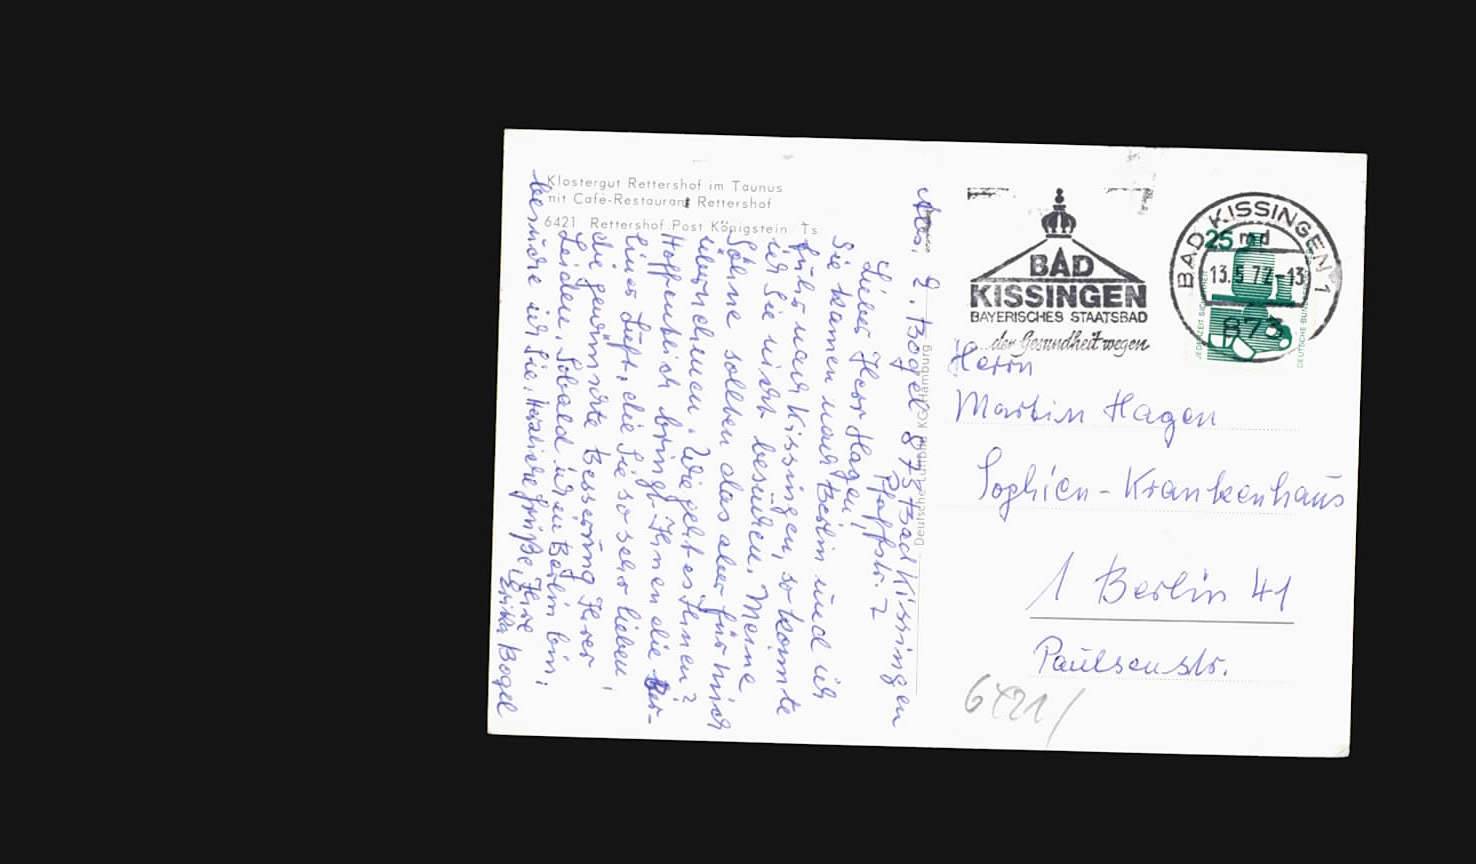 Klostergut Rettershof im Taunus
mit Cafe-Restaurant Rettershof
6421 Rettershof Post Königstein Ts
Abs. E. Bogel 873 Bad Kissingen
Pfaffstr. 2
Lieber Herr Hagen,
Sie kamen nach Berlin und ich
fuhr nach Kissingen, so konnte
ich Sie nicht besuchen. Meine
Söhne sollten das aber für mich
übernehmen. Wie geht es Ihnen?
Hoffentlich bringt Ihnen die
liner Luft, die Sie so sehr lieben,
die gewünschte Besserung Ihrer
Leiden. Sobald ich in Berlin bin,
besuche ich Sie. Herzliche Grüße, Ihre
Erika Bogel
Deutsche Luftbild KG Hamburg
BAD
KISSINGEN
BAYERISCHES STAATSBAD
...der Gesundheit wegen
BAD KISSINGEN 1
md
13.5.72-13
873
25
JEDERZEIT SICHERHEIT
DEUTSCHE BUNDESPOST
Herrn
Martin Hagen
Sophien-Krankenhaus
1 Berlin 41
Paulsenstr.
6421/